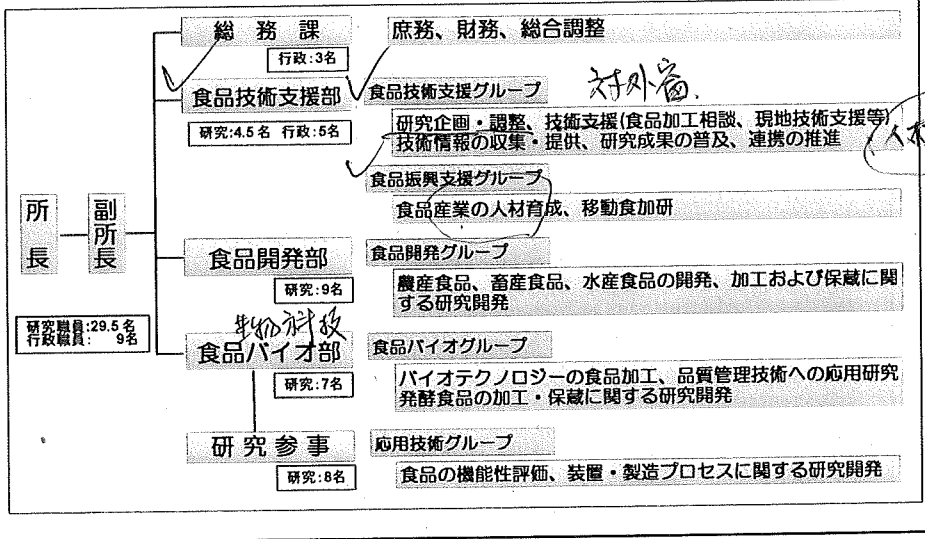 総務課
庶務、財務、総合調整
行政:3名
食品技術支援部
研究:4.5名 行政:5名
食品技術支援グループ
対外窗
研究企画・調整、技術支援(食品加工相談、現地技術支援等)
技術情報の収集・提供、研究成果の普及、連携の推進
食品振興支援グループ
食品産業の人材育成、移動食加研
所長
副所長
研究職員:29.5名
行政職員: 9名
食品開発部
研究:9名
食品開発グループ
農産食品、畜産食品、水産食品の開発、加工および保蔵に関
する研究開発
生物科技
食品バイオ部
研究:7名
食品バイオグループ
バイオテクノロジーの食品加工、品質管理技術への応用研究
発酵食品の加工・保蔵に関する研究開発
研究参事
研究:8名
応用技術グループ
食品の機能性評価、装置・製造プロセスに関する研究開発